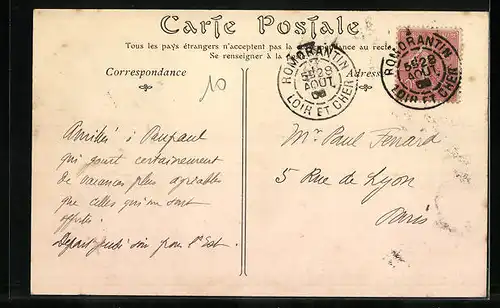 Carte Postale
Tous les pays étrangers n'acceptent pas la correspondance au recto
Se renseigner à la
Correspondance
Adresse
10
ROMORANTIN
29
AOUT
LOIR ET CHER
ROMORANTIN
29
AOUT
LOIR ET CHER
Amitiés à
qui jouit certainement
de vacances plus agréables
que celles qui me sont
offertes.
Départ jeudi soir pour l'Est.
Mr Paul Fenard
5 Rue de Lyon
Paris